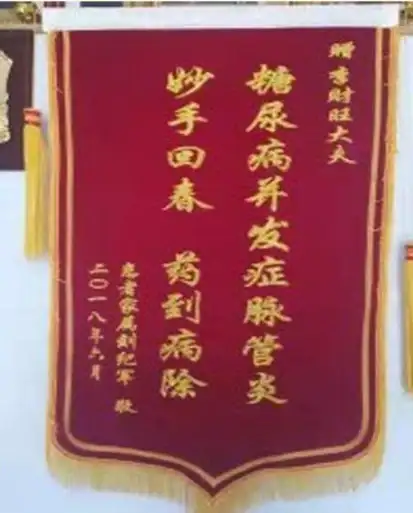 赠李财旺大夫
糖尿病并发症脉管炎
妙手回春 药到病除
患者家属刘纪军 敬
二〇一八年六月